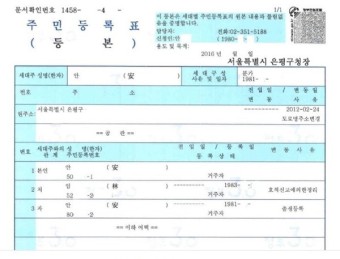 문서확인번호 1458- -4 -
1/1
주 민 등 록 표
( 등 본 )
이 등본은 세대별 주민등록표의 원본 내용과 틀림없음을 증명합니다.
담당자: 전화:02-351-5186
신청인: (1980- )
용도 및 목적:
2016 년 월 일
서울특별시 은평구청장
세대주 성명(한자) 안 (安 )
세 대 구 성 사유 및 일자
분가
1981- -
번호 주 소
전 입 일 / 변 동 일
변 동 사 유
현주소: 서울특별시 은평구
2012-02-24
도로명주소변경
== 공 란 ==
번호
세대주와의 관 계
성 명(한자)
주민등록번호
전 입 일 / 등 록 일
등 록 상 태
변 동 사 유
1 본인 안 (安
50 -1
거주자
2 처 임 (林
52 -2
1983- -
거주자
3 자 안 (安
80 -2
1981- -
거주자
출생등록
== 이하 여백 ==